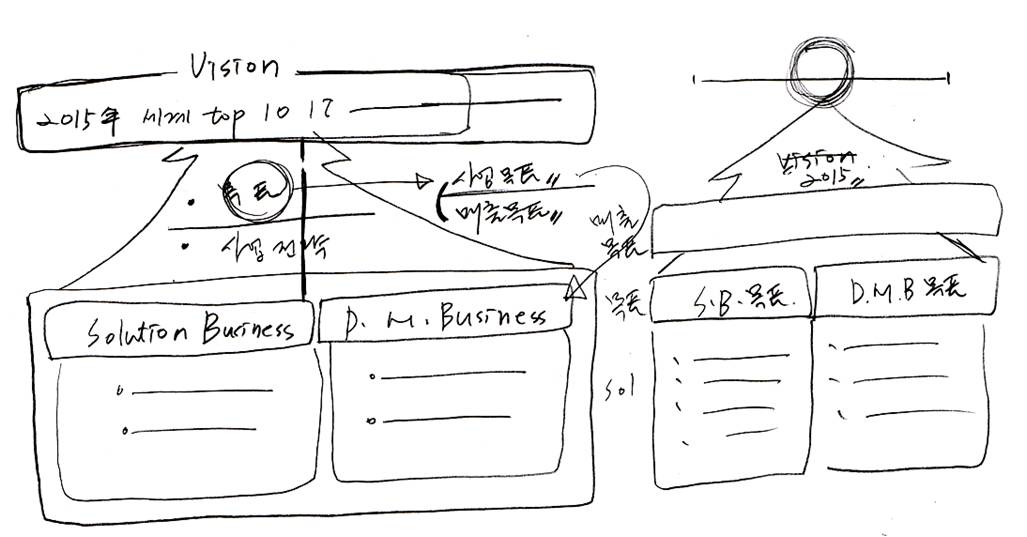 Vision
2015年 세계 top 10 I T
목표
사업목표〃
매출목표〃
사업 전략
매출
목표
Solution Business
D. M. Business
Vision
2015〃
목표
S.B. 목표.
D.M.B 목표
Sol